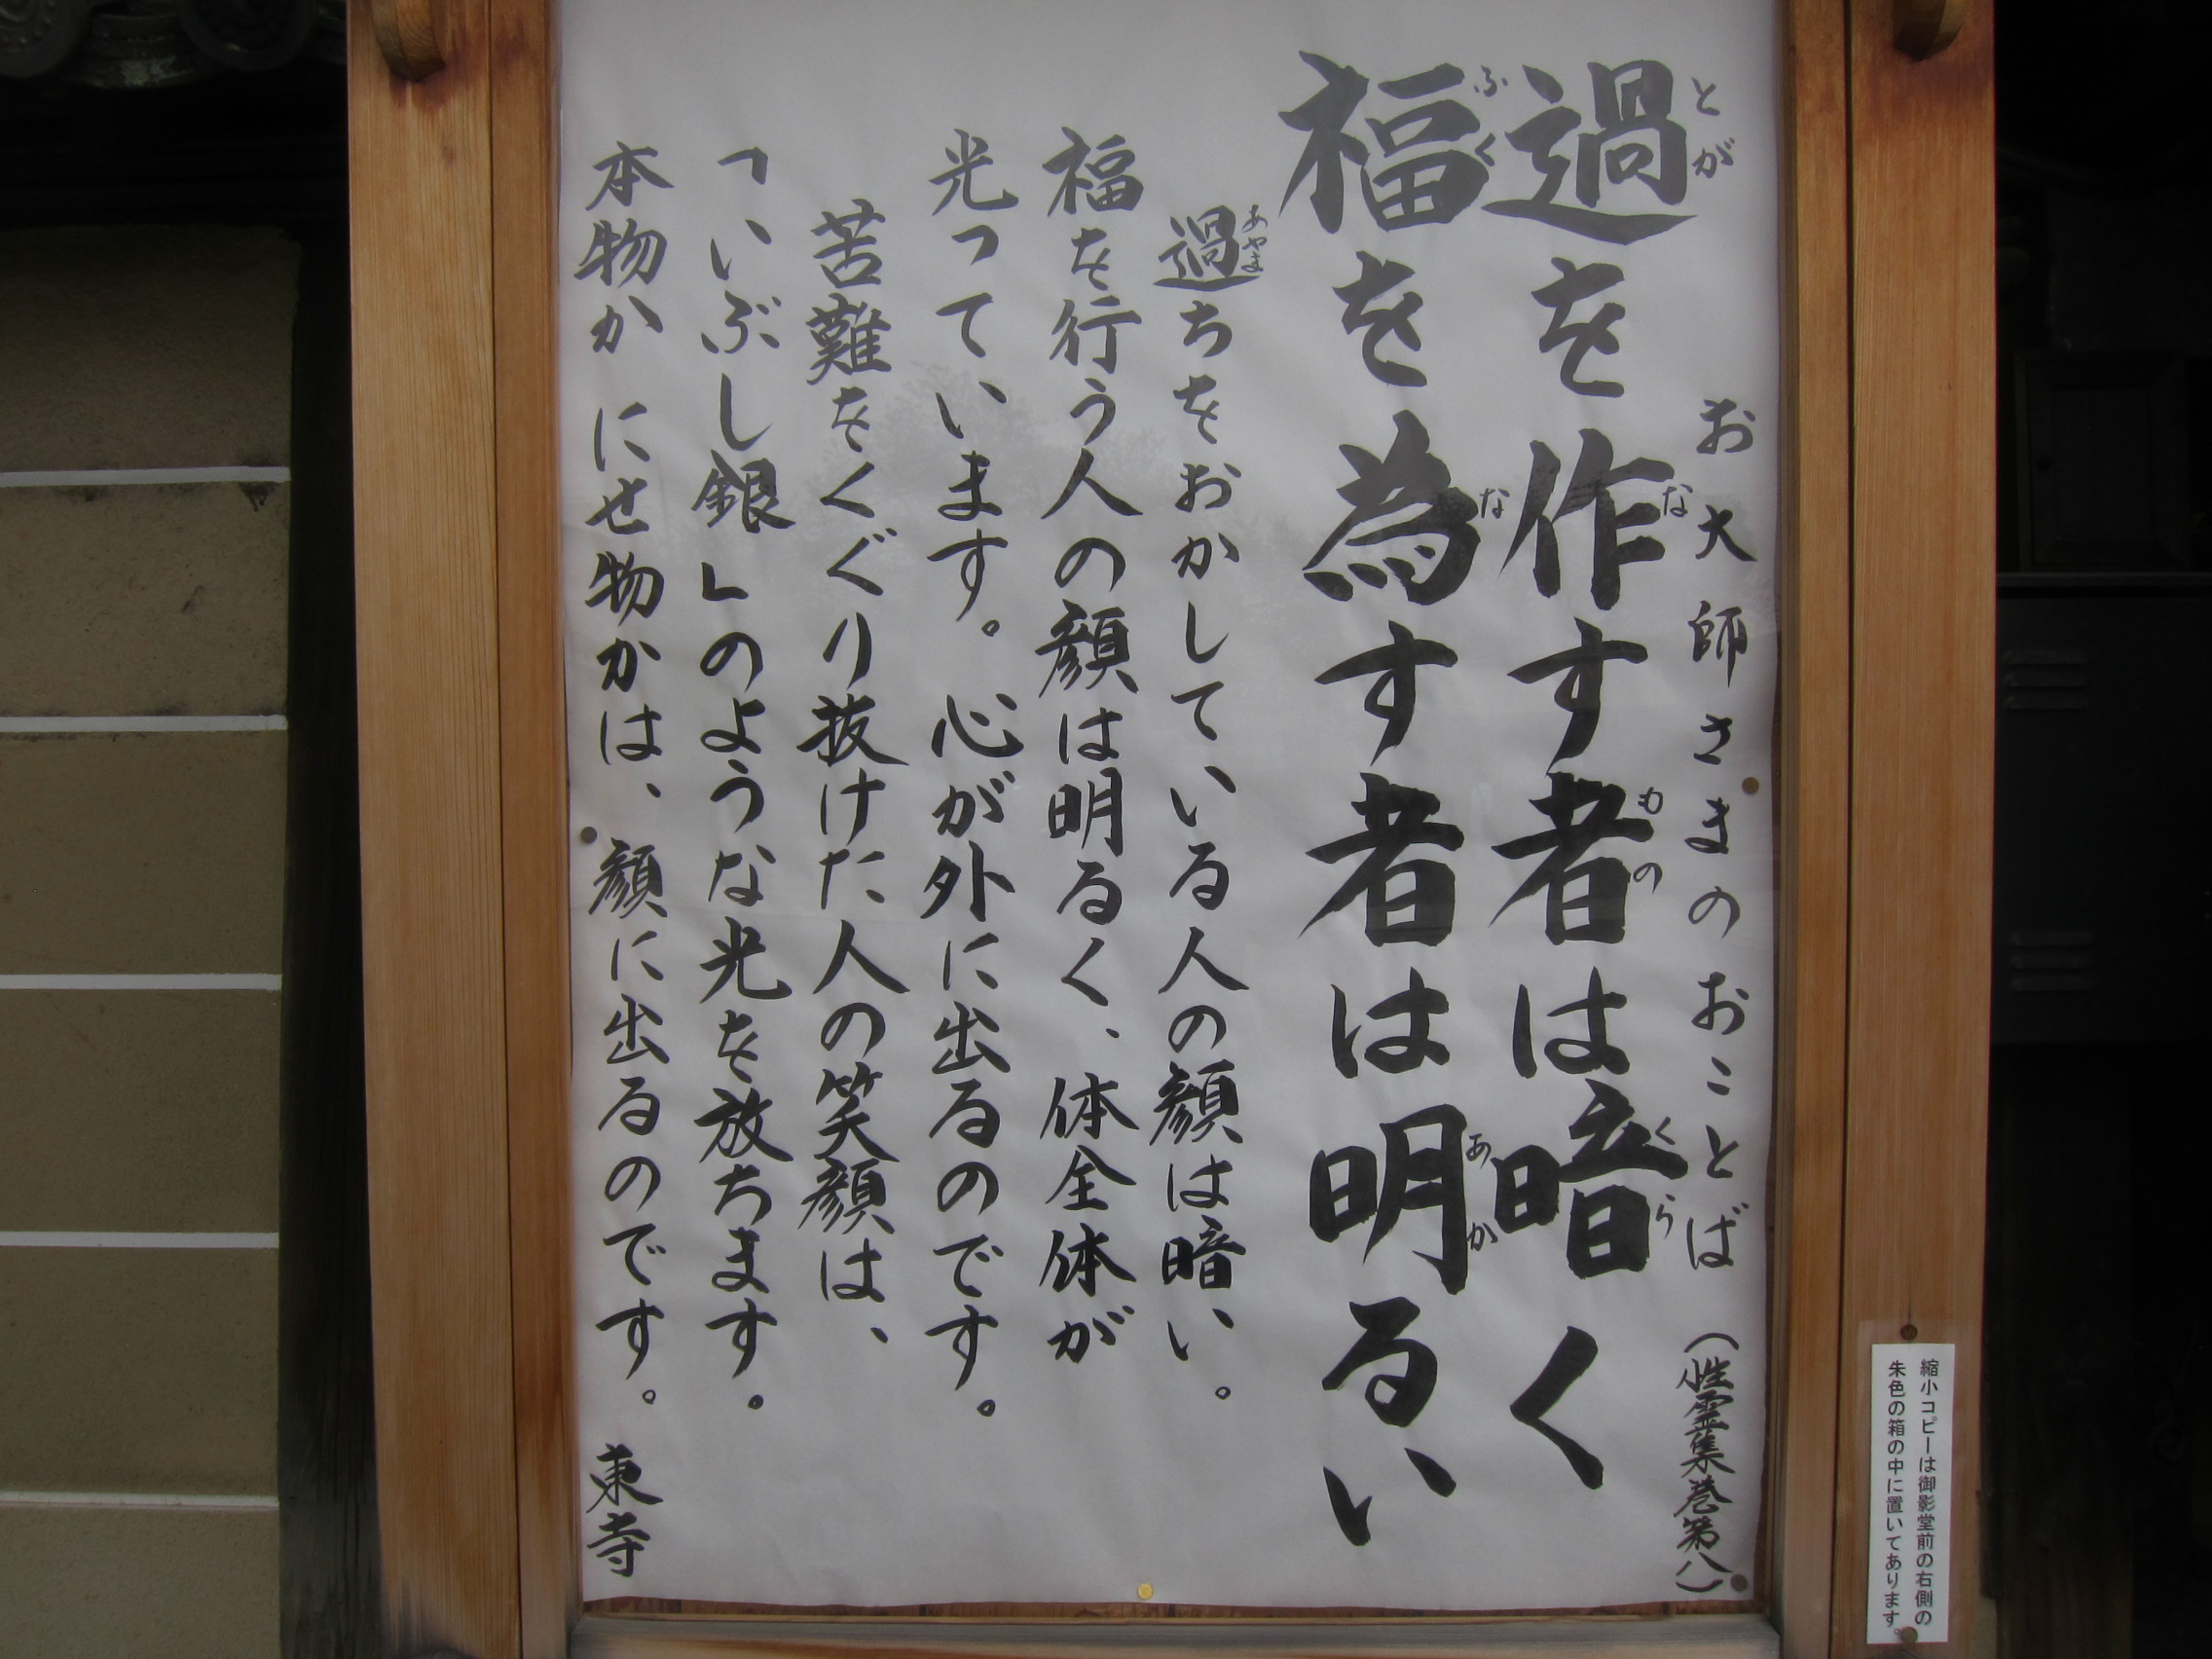 お大師さまのおことば(性霊集巻第八)
過を作す者は暗く
福を為す者は明るい
過ちをおかしている人の顔は暗い。
福を行う人の顔は明るく、体全体が
光っています。心が外に出るのです。
苦難をくぐり抜けた人の笑顔は、
「いぶし銀」のような光を放ちます。
本物か にせ物かは、顔に出るのです。 東寺
縮小コピーは御影堂前の右側の
朱色の箱の中に置いてあります。
とが
な
もの
くら
ふく
な
あか
あやま